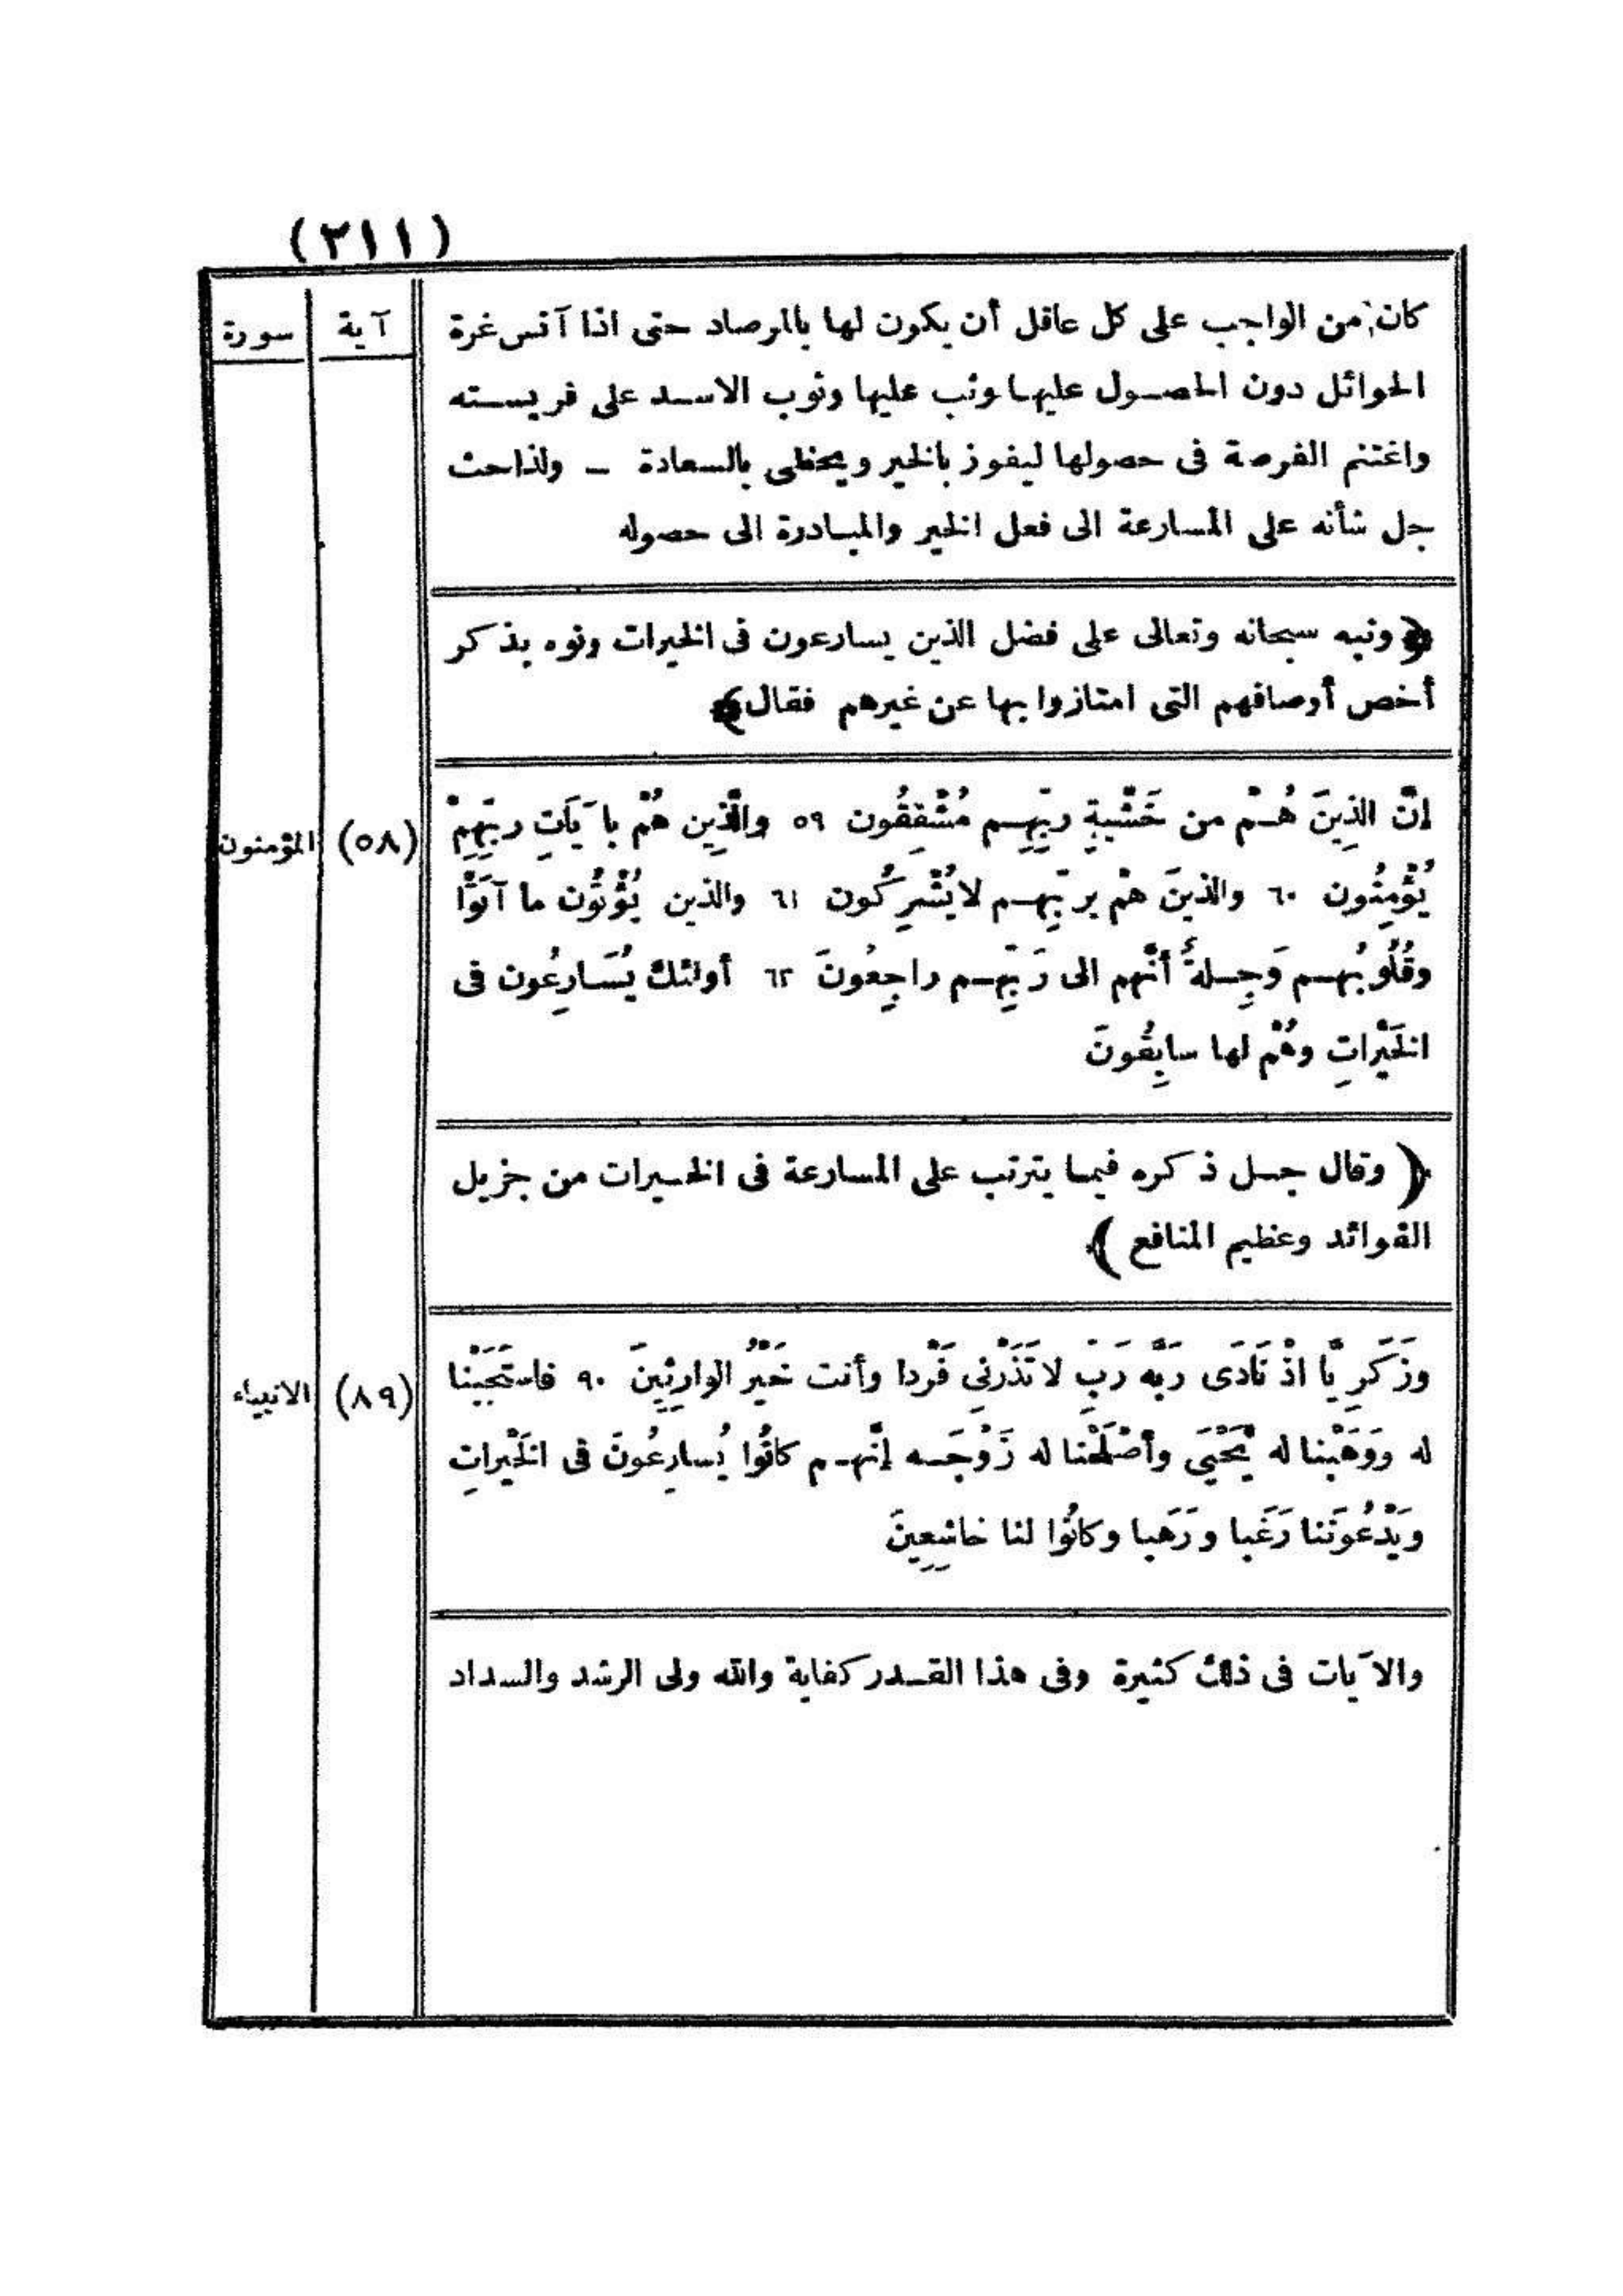 (٣١١)
سورة | آية | كان من الواجب على كل عاقل أن يكون لها بالمرصاد حتى اذا آنس غرة
الحوائل دون الحصول عليها وثب عليها وثوب الاسد على فريسته
واغتنم الفرصة فى حصولها ليفوز بالخير ويحظى بالسعادة – ولذا حث
جل شأنه على المسارعة الى فعل الخير والمبادرة الى حصوله
﴿ ونبه سبحانه وتعالى على فضل الذين يسارعون فى الخيرات ونوه بذكر
أخص أوصافهم التى امتازوا بها عن غيرهم فقال ﴾
إنَّ الذِينَ هُمْ من خَشْيةِ ربّهِم مُشْفِقُون ٥٩ والَّذِين هُمْ بآيَاتِ ربّهِمْ (٥٨) المؤمنون
يُؤْمِنُون ٦٠ والذينَ همْ بربّهِم لا يُشْرِكُون ٦١ والذين يُؤْتُون ما آتَوْا
وقُلُوبُهم وَجِلةٌ أنَّهم الى رَبّهِم راجِعُونَ ٦٢ أولئك يُسَارِعُون فى
الخَيْراتِ وهُمْ لها سابِقُونَ
( وقال جل ذكره فيما يترتب على المسارعة فى الخيرات من جزيل
الفوائد وعظيم المنافع )
وزَكَرِيَّا اذْ نَادَى رَبَّه رَبِّ لا تَذَرْنِى فَرْدا وأنت خَيْرُ الوارِثِينَ ٩٠ فاستَجَبْنا (٨٩) الانبياء
له ووَهَبْنا له يَحْيَى وأصْلَحْنا له زَوْجَه إنَّهم كانُوا يُسارِعُونَ فى الخَيْراتِ
ويَدْعُونَنا رَغَبا ورَهَبا وكانُوا لنا خاشِعِينَ
والآيات فى ذلك كثيرة وفى هذا القدر كفاية والله ولى الرشد والسداد